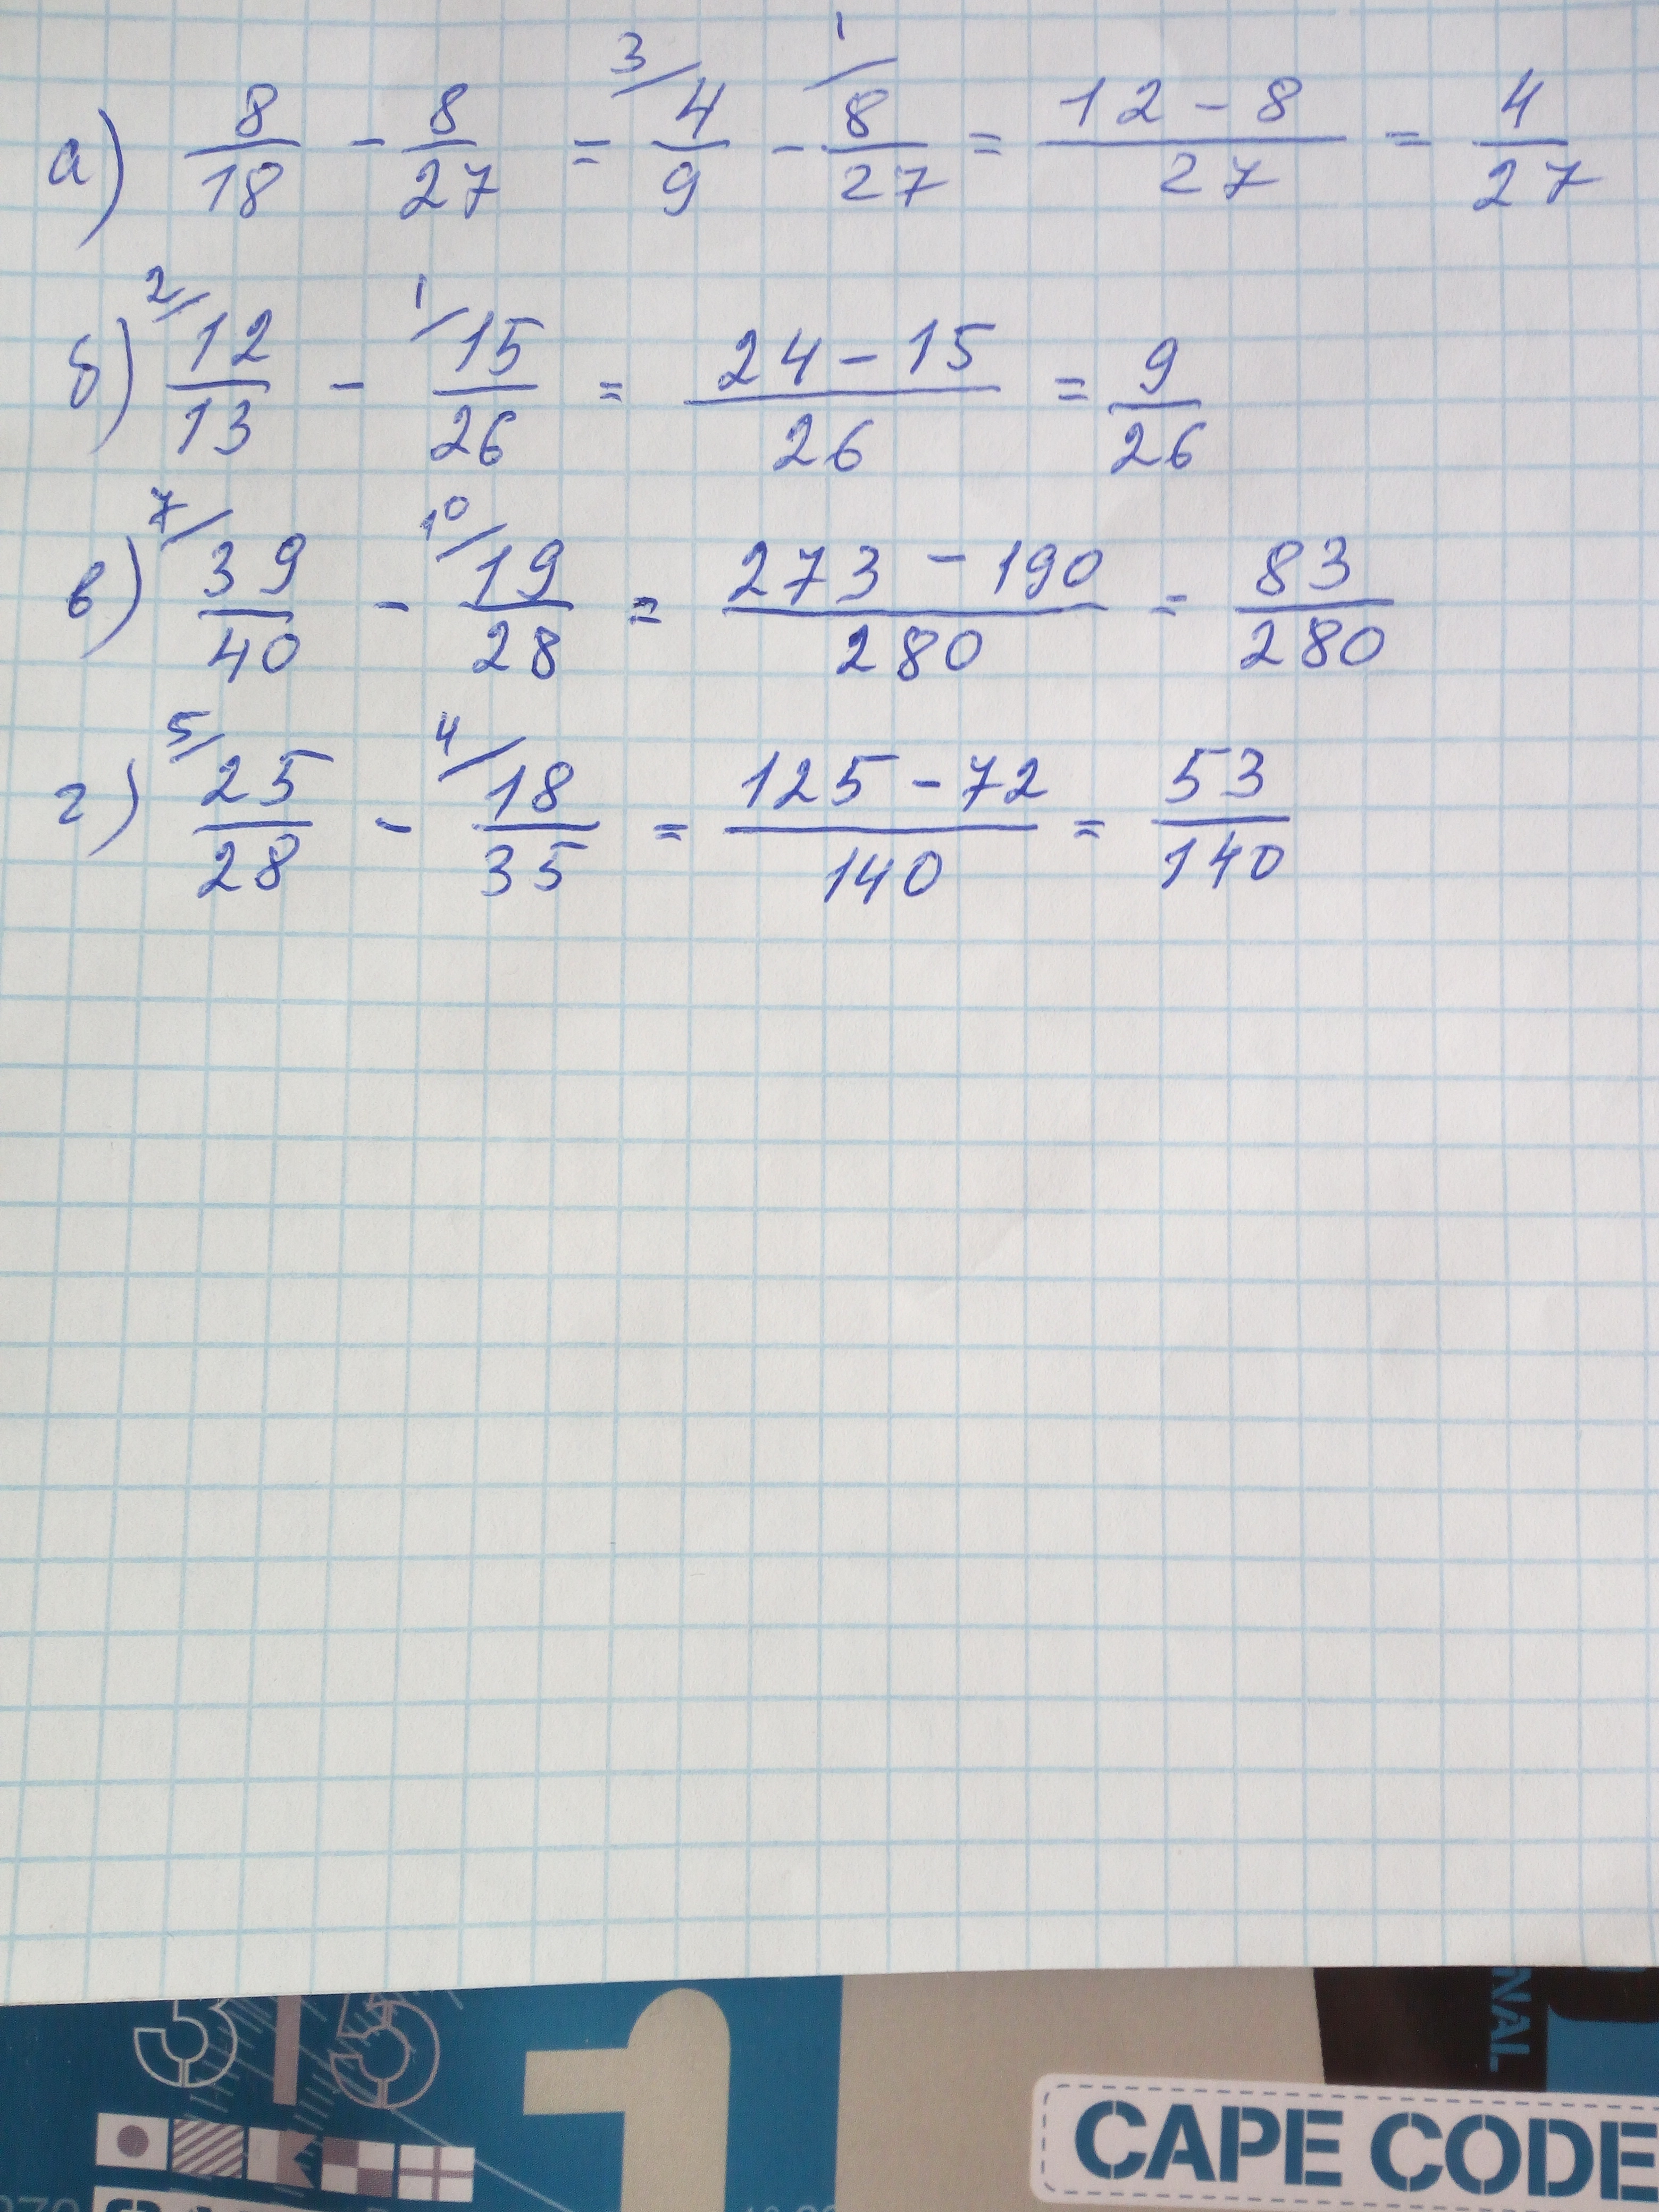 а) 8/18 - 8/27 = 3/ 4/9 - 1/ 8/27 = (12 - 8)/27 = 4/27
б) 2/ 12/13 - 1/ 15/26 = (24 - 15)/26 = 9/26
в) 7/ 39/40 - 10/ 19/28 = (273 - 190)/280 = 83/280
г) 5/ 25/28 - 4/ 18/35 = (125 - 72)/140 = 53/140
315
1
CAPE CODE